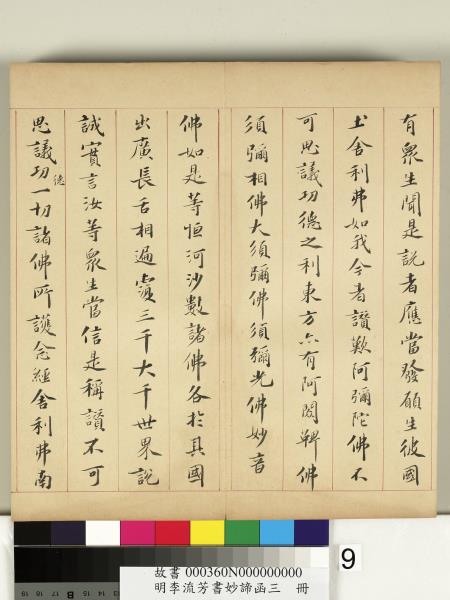 有眾生聞是說者應當發願生彼國
土舍利弗如我今者讚歎阿彌陀佛不
可思議功德之利東方亦有阿閦鞞佛
須彌相佛大須彌佛須彌光佛妙音
佛如是等恒河沙數諸佛各於其國
出廣長舌相遍覆三千大千世界說
誠實言汝等眾生當信是稱讚不可
思議功德一切諸佛所護念經舍利弗南
9
故書 000360N000000000
明李流芳書妙諦函三 冊